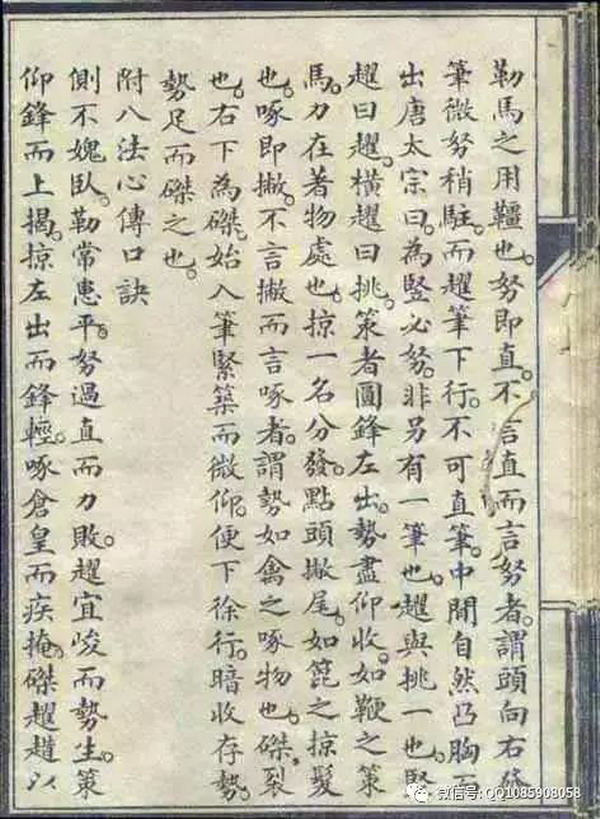 勒馬之用韁也。努即直。不言直而言努者。謂頭向右發
筆微努稍駐。而趯筆下行。不可直筆。中間自然凸胸而
出唐太宗曰。為竪必努。非另有一筆也。趯與挑一也。竪
趯曰趯。橫趯曰挑。策者圓鋒左出。勢盡仰收。如鞭之策
馬。力在著物處也。掠一名分發。點頭撇尾。如箆之掠髮
也。啄即撇。不言撇而言啄者。謂勢如禽之啄物也。磔裂
也。右下為磔。始入筆緊築而微仰。便下徐行。暗收存勢。
勢足而磔之也。
附八法心傳口訣
側不媿臥。勒常患平。努過直而力敗。趯宜峻而勢生。策
仰鋒而上揭。掠左出而鋒輕。啄倉皇而疾掩。磔趯趙以
微信号: QQ1085908058